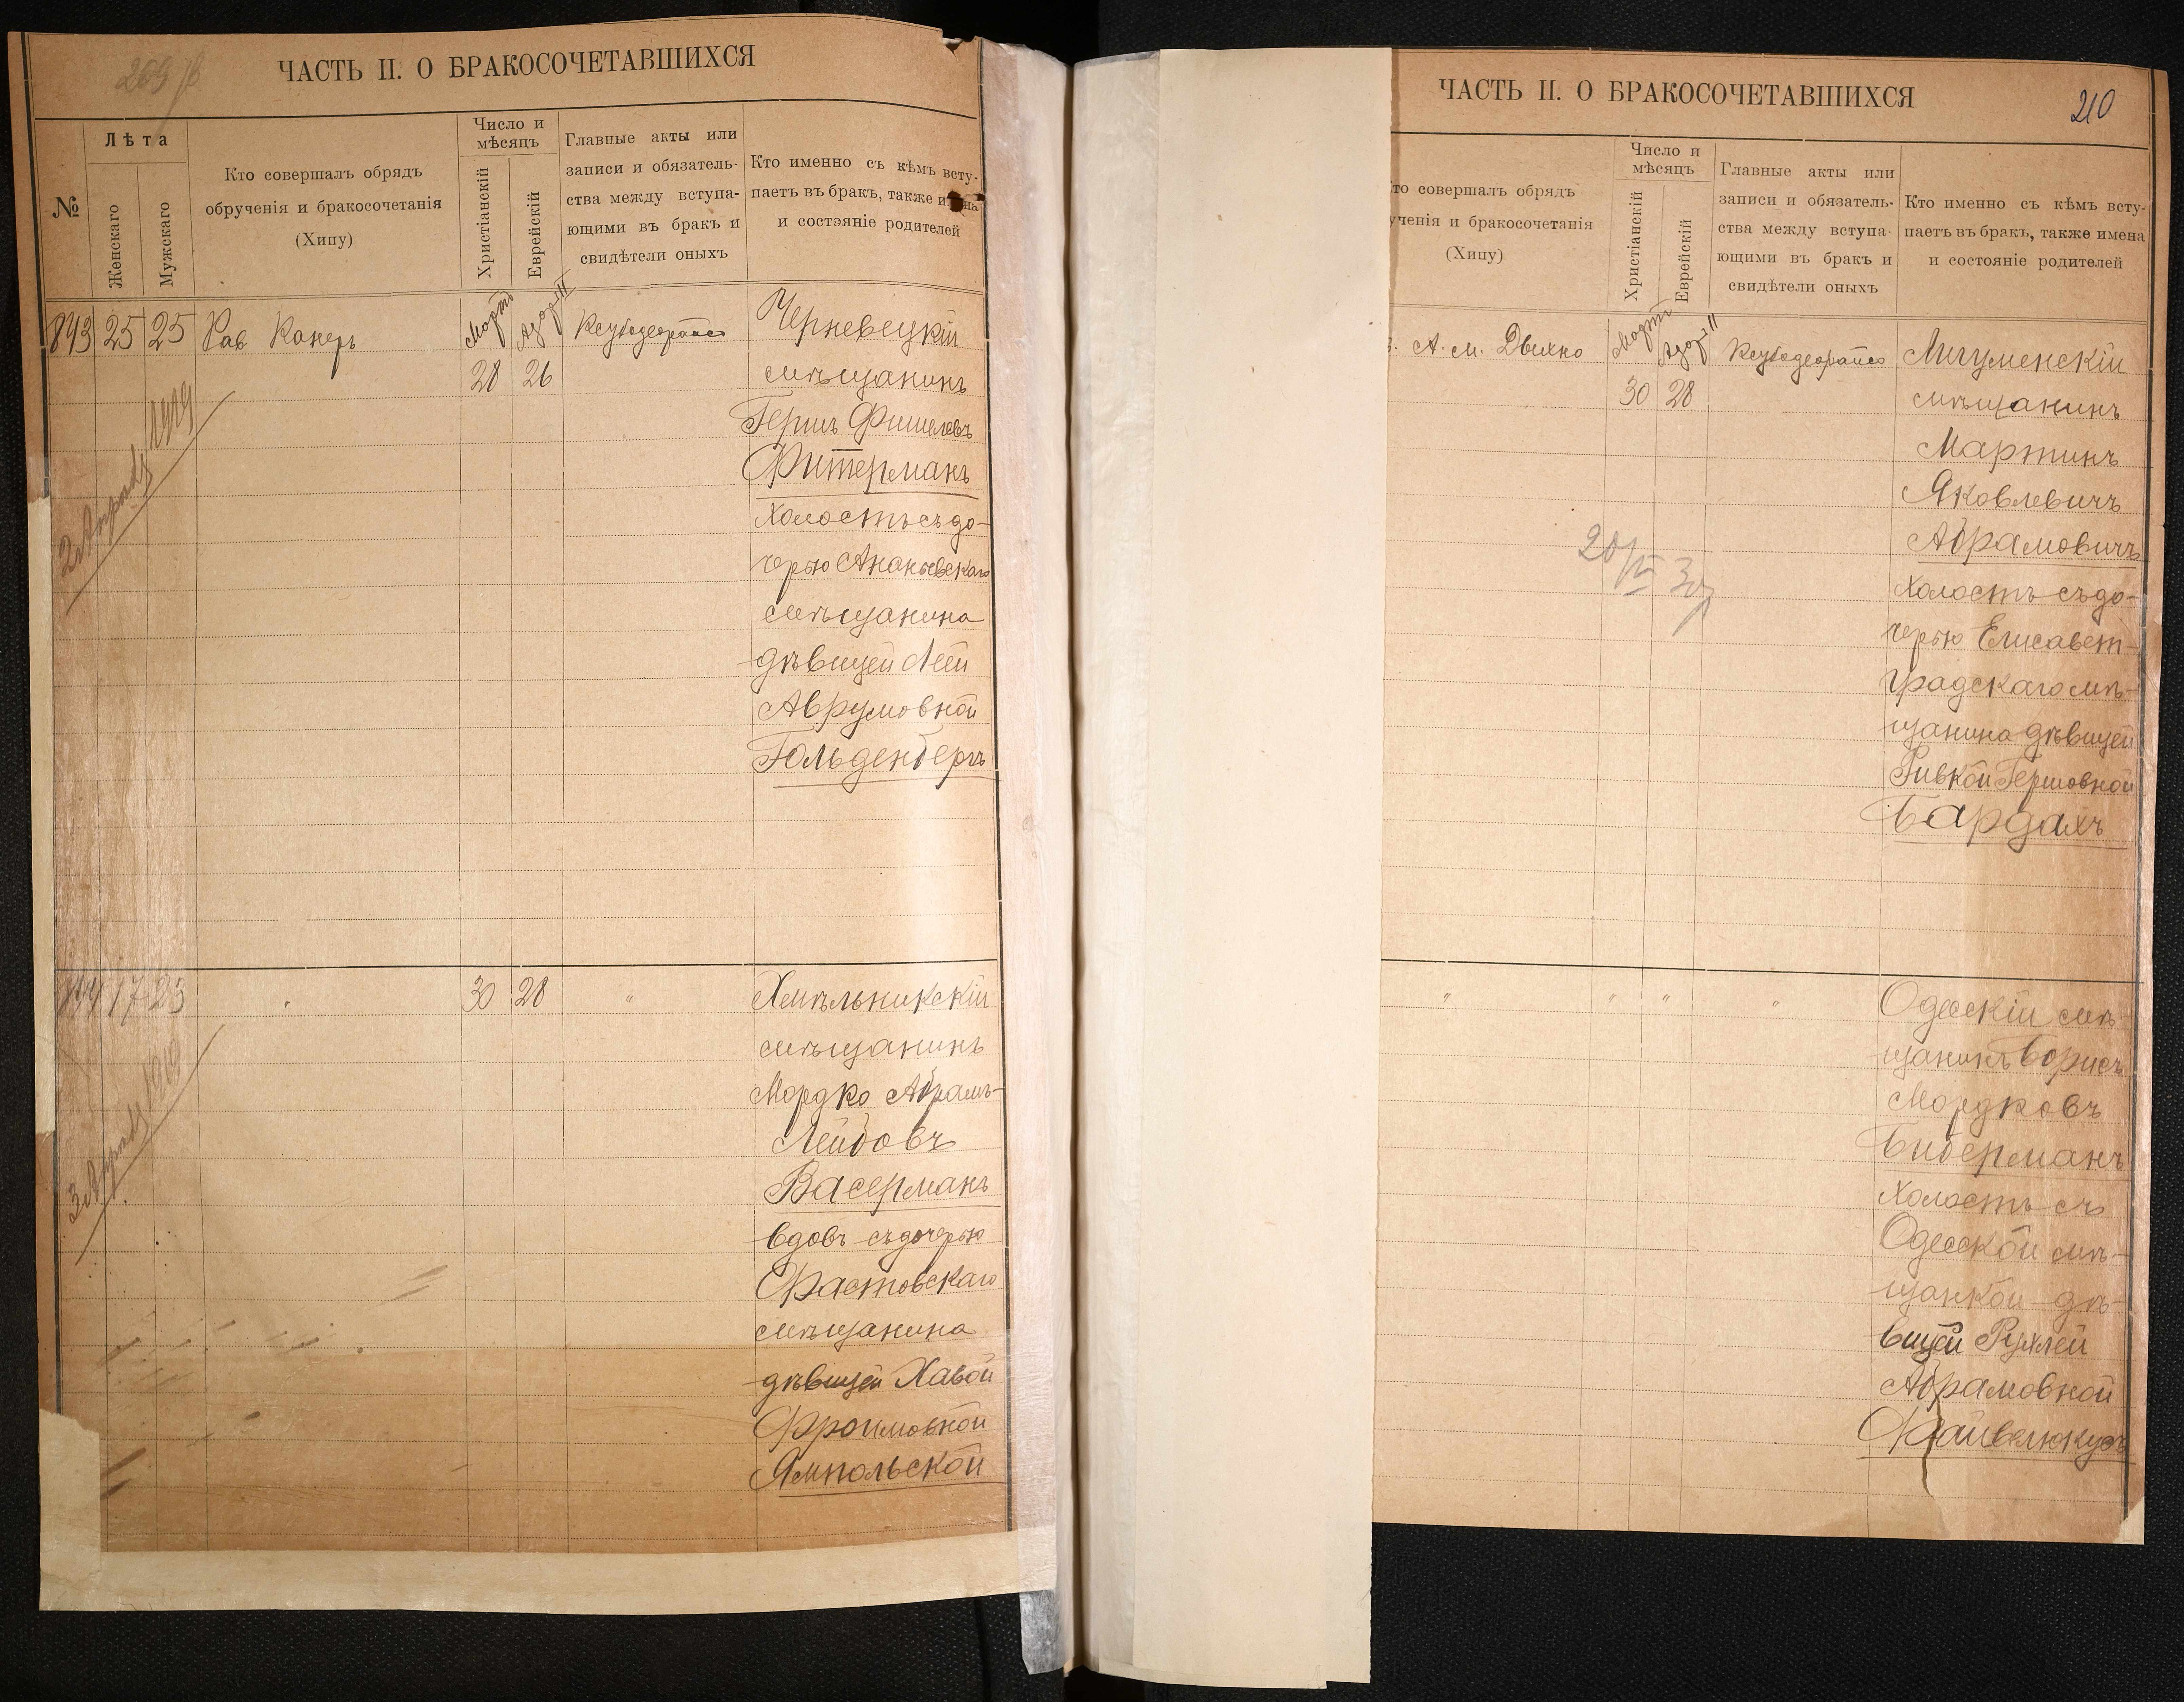 ЧАСТЬ II. О БРАКОСОЧЕТАВШИХСЯ
№
Лѣта
Женскаго
Мужскаго
Кто совершалъ обрядъ
обрученія и бракосочетанія
(Хипу)
Число и
мѣсяцъ
Христіанскій
Еврейскій
Главные акты или
записи и обязатель-
ства между вступа-
ющими въ бракъ и
свидѣтели оныхъ
Кто именно съ кѣмъ всту-
паетъ въ бракъ, также
и состэяніе родителей
843 25 25 Рав Канеръ
Мартъ Адоръ II
28 26
Черневецкій
мѣщанинъ
Гершъ Фишелевъ
Фитерманъ
холостъ съ до-
черью Ананьевскаго
мѣщанина
дѣвицей Леей
Аврумовной
Гольденбергъ
2 Апрель 1919
844 17 23 " 30 28 "
Хмѣльникскій
мѣщанинъ
Мордко Абрамъ-
Лейбовъ
Васерманъ
вдовъ съ дочерью
Фастовскаго
мѣщанина
дѣвицей Хавой
Фроимовной
Ямпольской
3 Апрель
ЧАСТЬ II. О БРАКОСОЧЕТАВШИХСЯ
210
то совершалъ обрядъ
ученія и бракосочетанія
(Хипу)
Число и
мѣсяцъ
Христіанскій
Еврейскій
Главные акты или
записи и обязатель-
ства между вступа-
ющими въ бракъ и
свидѣтели оныхъ
Кто именно съ кѣмъ всту-
паетъ въ бракъ, также имена
и состояніе родителей
А. М. Двихно
Мартъ Адоръ II
30 28
мѣщанинъ
Мартинъ
Яковлевичъ
Абрамовичъ
холостъ съ до-
черью Елисавет-
градскаго мѣ-
щанина дѣвицей
Ривкой Гершовной
Бардахъ
" " " "
Одесскій мѣ-
щанинъ Борисъ
Мордковъ
Биберманъ
холостъ съ
Одесской мѣ-
щанкой дѣ-
вицей Рухлей
Абрамовной